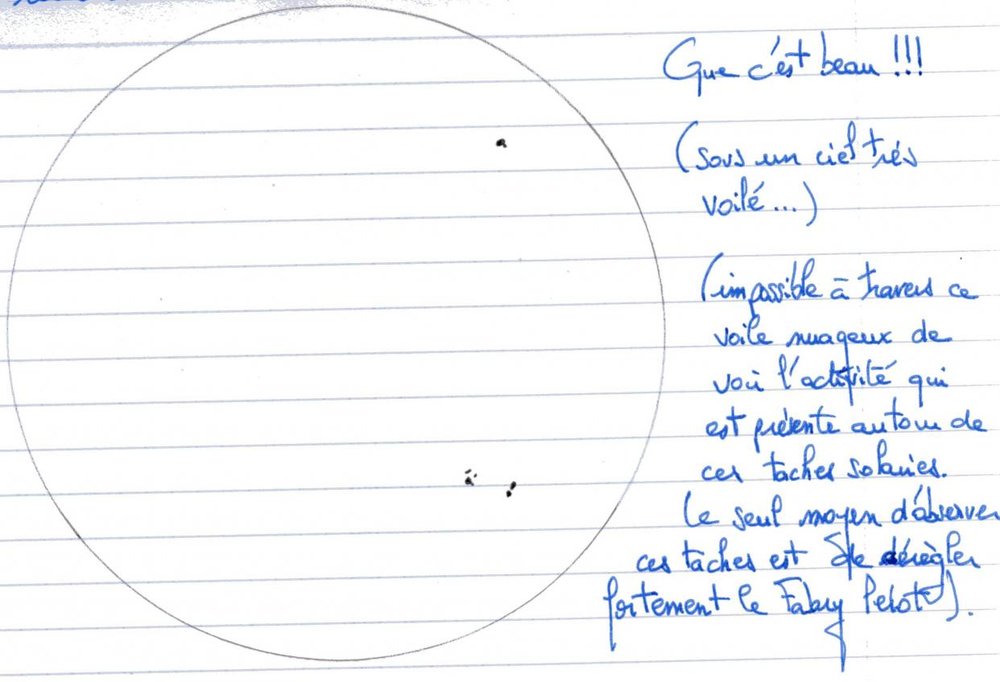 Que c'est beau !!!
(sous un ciel très
voilé...)
(impossible à travers ce
voile nuageux de
voir l'activité qui
est présente autour de
ces taches solaires.
Le seul moyen d'observer
ces taches est de dérègler
fortement le Fabry Pelot).